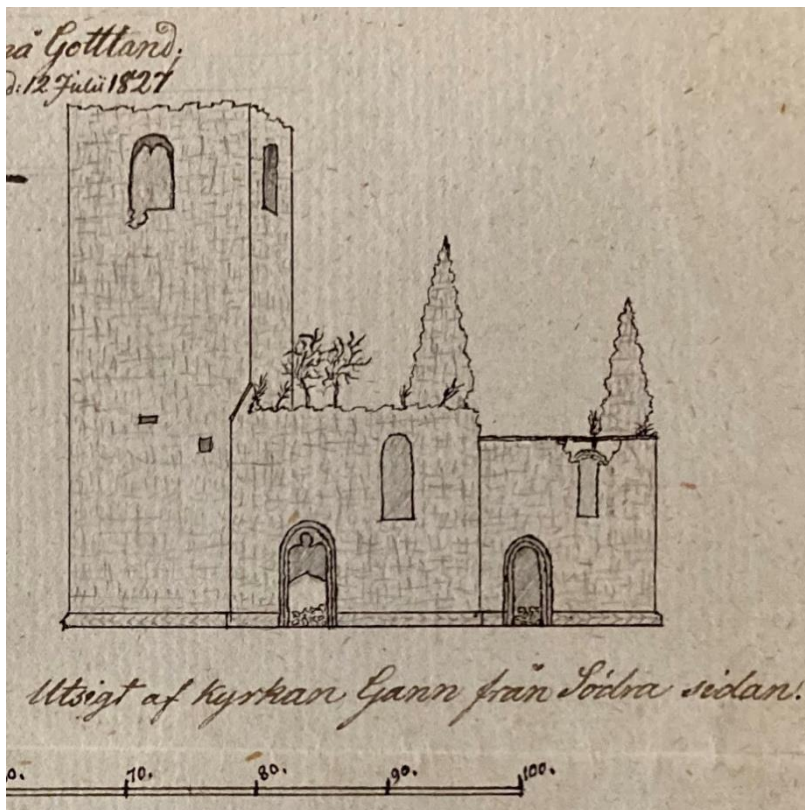 på Gottland;
d: 12 Julii 1827
Utsigt af Kyrkan Gann från Södra sidan.
0. 70. 80. 90. 100.